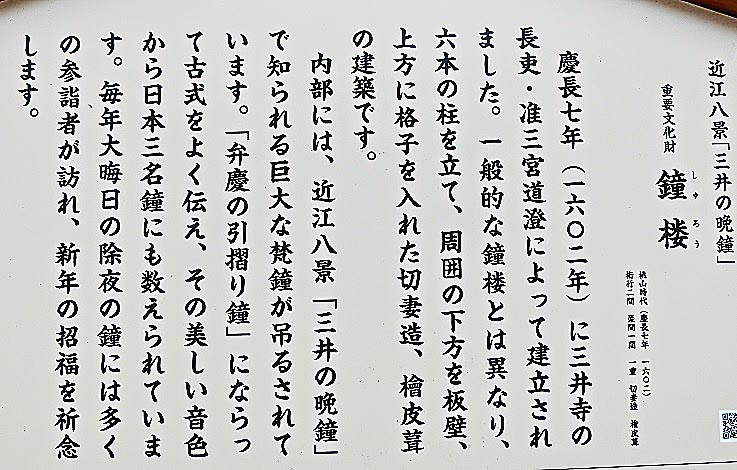 近江八景「三井の晩鐘」
重要文化財
鐘楼
しゅろう
桃山時代（慶長七年 一六〇二）
桁行二間 梁間一間 一重 切妻造 檜皮葺
慶長七年（一六〇二年）に三井寺の
長吏・准三宮道澄によって建立され
ました。一般的な鐘楼とは異なり、
六本の柱を立て、周囲の下方を板壁、
上方に格子を入れた切妻造、檜皮葺
の建築です。
内部には、近江八景「三井の晩鐘」
で知られる巨大な梵鐘が吊るされて
います。「弁慶の引摺り鐘」にならっ
て古式をよく伝え、その美しい音色
から日本三名鐘にも数えられていま
す。毎年大晦日の除夜の鐘には多く
の参詣者が訪れ、新年の招福を祈念
します。